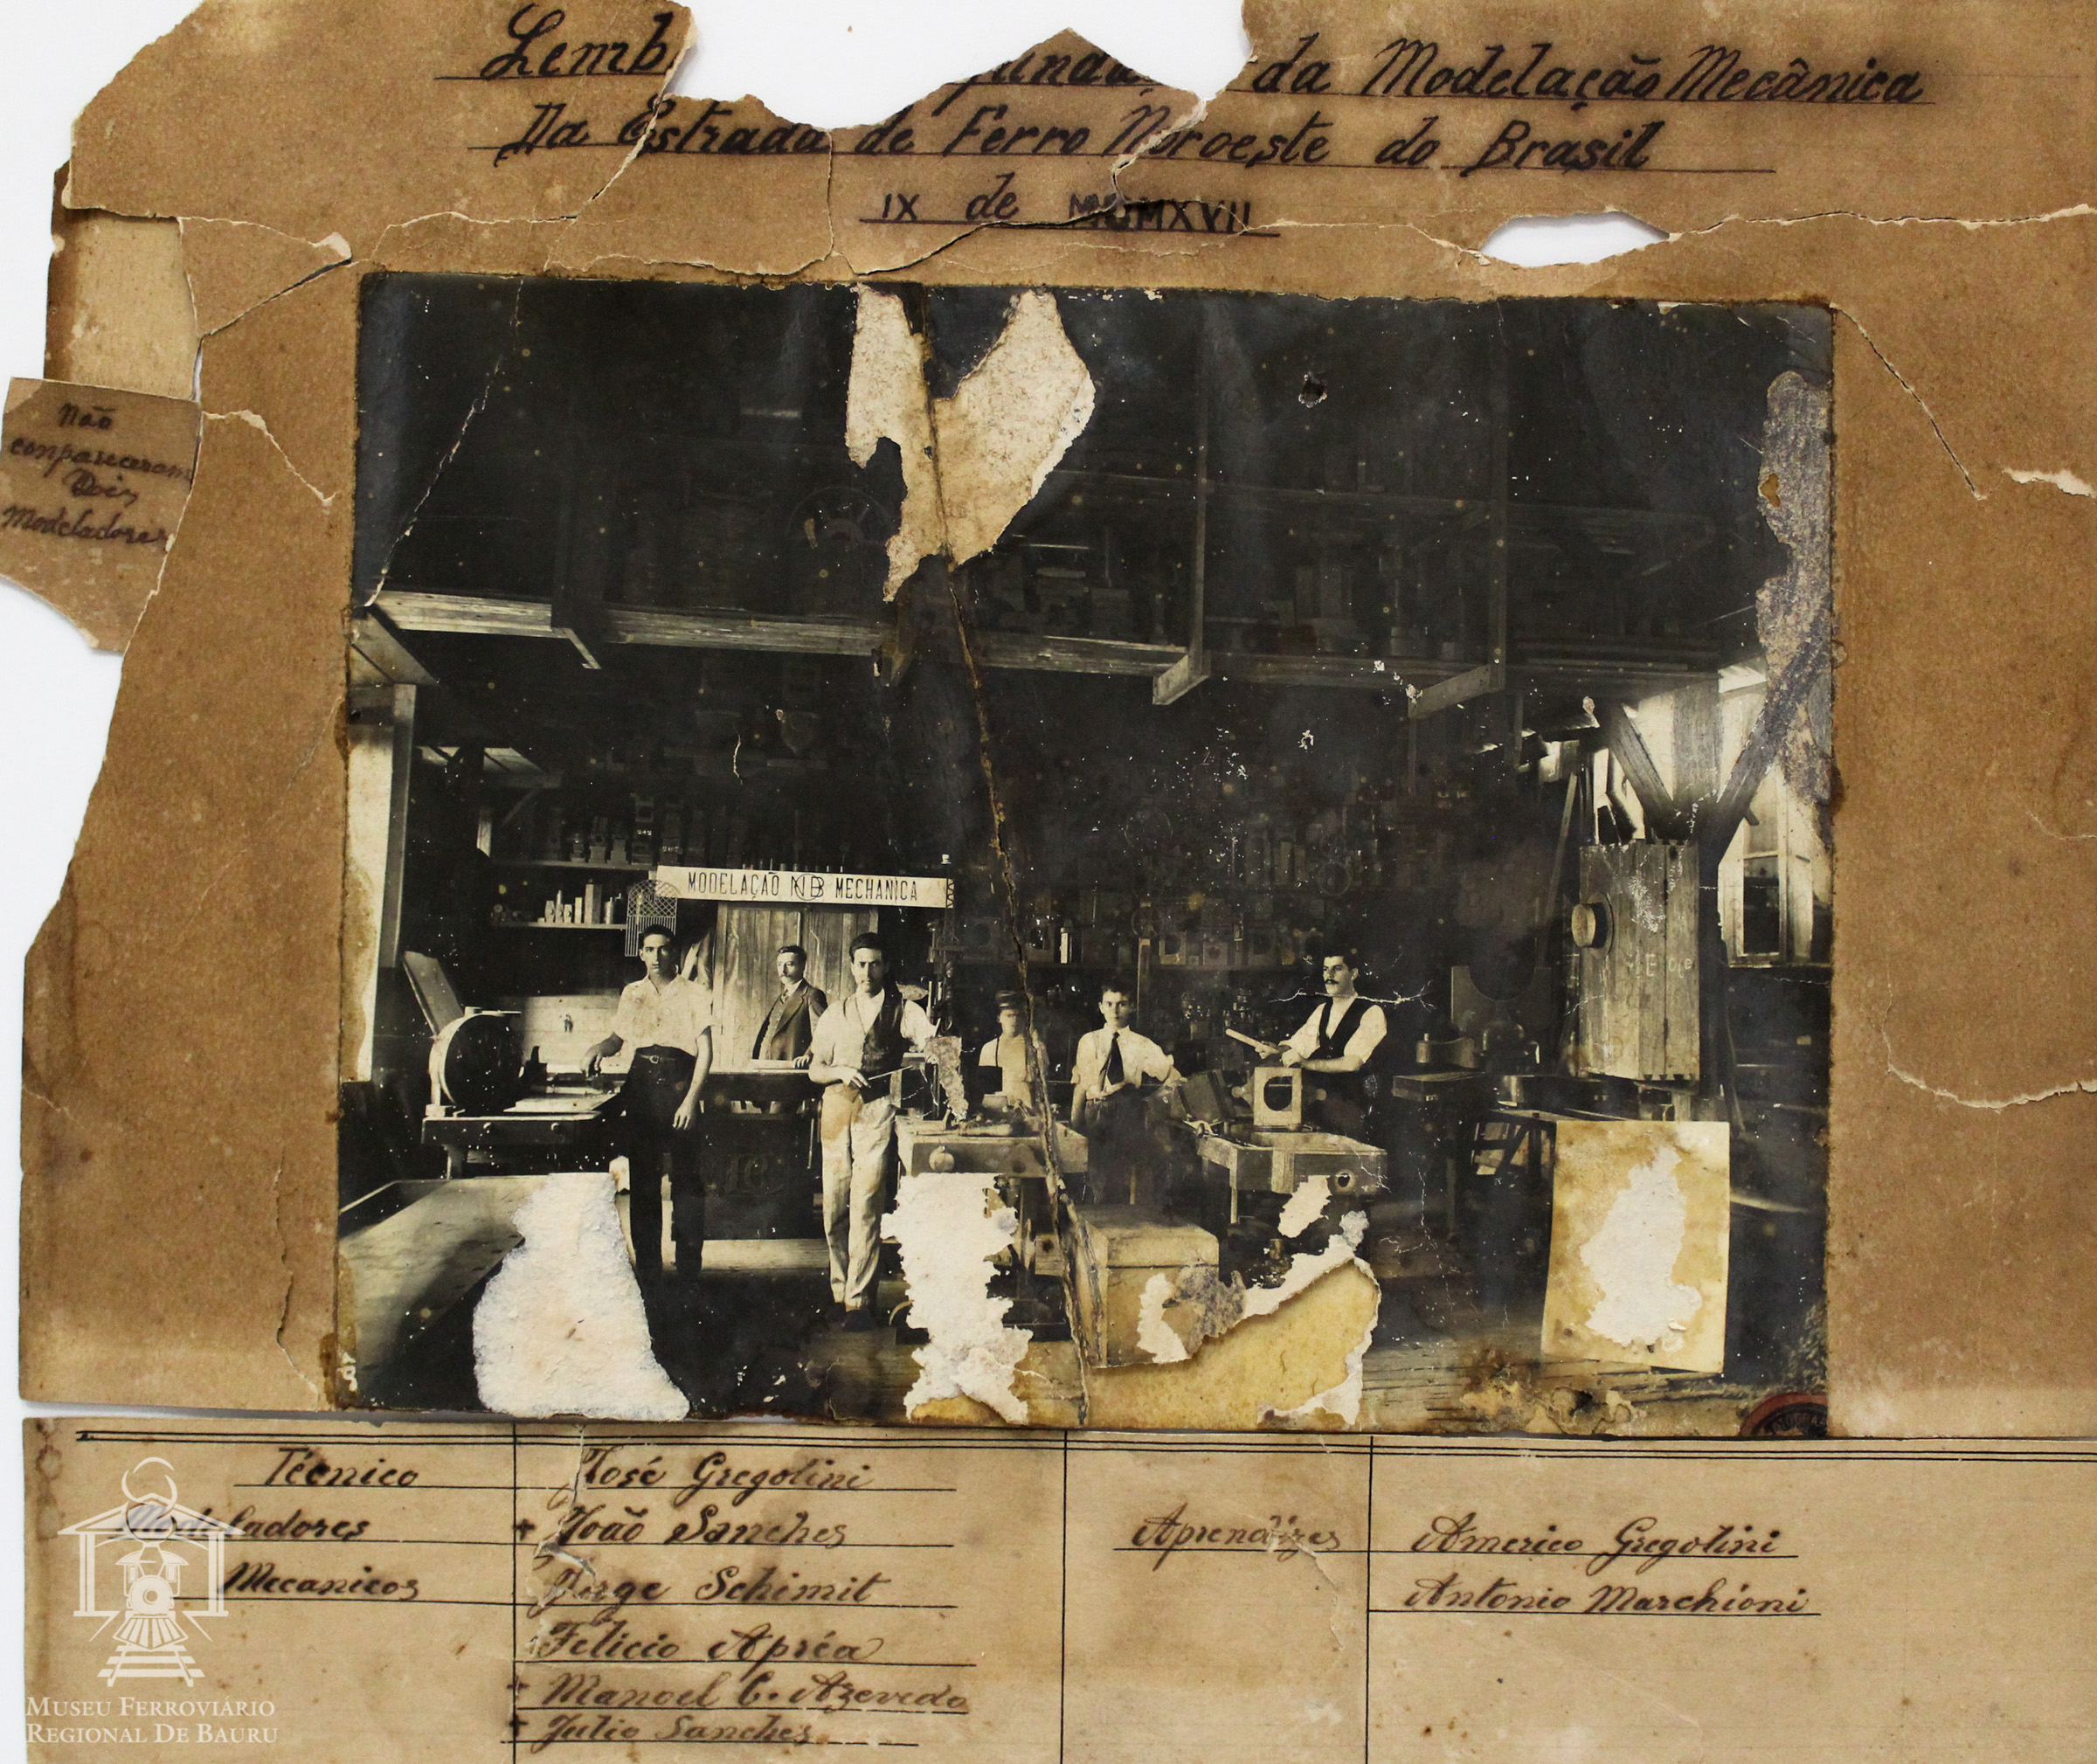 Lemb funda da Modelação Mecânica
Da Estrada de Ferro Noroeste do Brasil
IX de
Não
conpareceram
Dois
Modeladores
MODELAÇÃO NB MECHANICA
Técnico José Gregolini
Modeladores + João Sanches Aprendizes Americo Gregolini
Mecanicos Jorge Schimit Antonio Marchioni
Felicio Apréa
+ Manoel C. Azevedo
+ Julio Sanches
MUSEU FERROVIÁRIO
REGIONAL DE BAURU